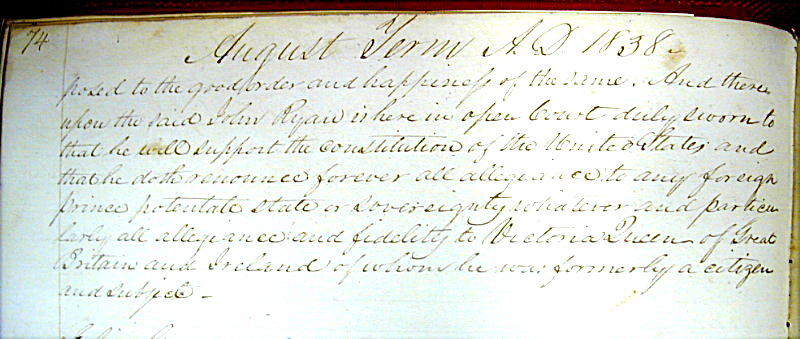 74
August Term A.D. 1838
posed to the good order and happiness of the same. And there
upon the said John Ryan is here in open Court duly sworn to
that he will support the Constitution of the United States and
that he doth renounce forever all allegiance to any foreign
prince potentate state or sovereignty whatever and particu
larly all allegiance and fidelity to Victoria Queen of Great
Britain and Ireland of whom he was formerly a citizen
and subject –